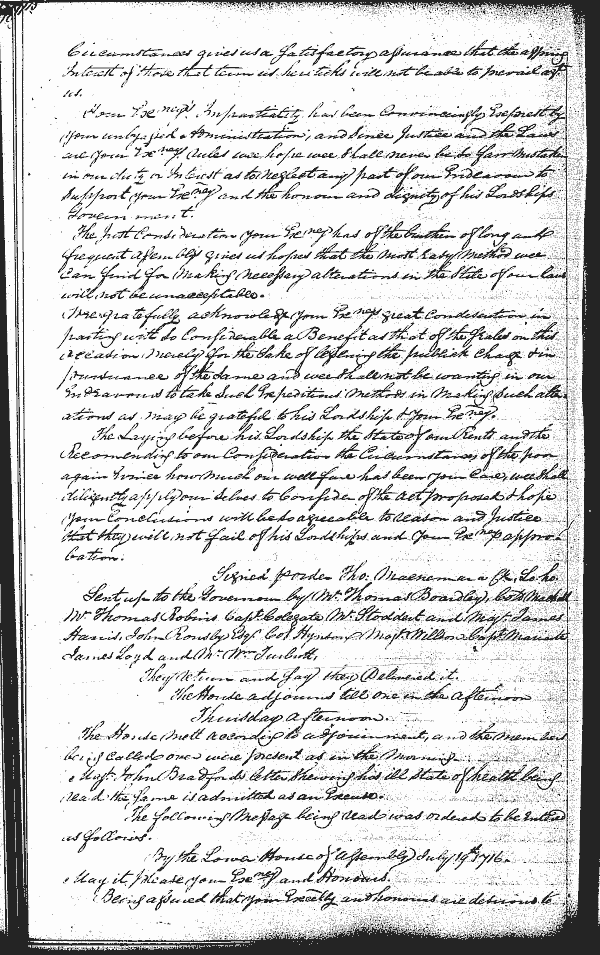 Circumstances gives us a Satisfactory assurance that the
Interest of those that term us hereticks will not be able to prevail agt
us.
Your Exncys Impartiality has been Convincingly Exprest by
your unbyased Administration, and Since Justice and the Laws
are your Exncys Rules wee hope wee shall never be so farr mistaken
in our duty or Interest as to Neglect any part of our Endeavour to
Support your Exncy and the honour and dignity of his Lordships
Government.
The just Consideration your Exncy has of the burthen of long and
frequent Assemblys gives us hopes that the most Easy Method wee
Can find for making necessary alterations in the State of our laws
will not be unacceptable.
Wee gratefully acknowledge your Exncys great Condescention in
parting with so Considerable a Benefit as that of the Seales on this
occasion merely for the Sake of lessening the publick Charge & in
pursuance of the Same and wee shall not be wanting in our
Endeavours to take Such Expeditious Methods in Making Such alter
ations as may be grateful to his Lordship & your Exncy.
The Laying before his Lordship the State of our Rents and the
Recomending to our Consideration the Circumstances of the poor
again Evince how much our wellfare has been your Care, wee shall
diligently apply our selves to Consider of the Act proposed & hope
your Conclusions will be so agreeable to reason and Justice
that they will not fail of his Lordships and your Exncys appro
bation.
Signed p order Tho. Macnemara Clk. Lo. ho.
Sent up to the Governour by Mr Thomas Boardley, Colo
Mr Thomas Robins Capt. Colegate Mr Stoddert and Majr. James
Harris, John Rousby Esqr Col Hynson Majr. Wilson Capt. Mariartt
James Loyd and Mr. Wm Turbutt.
They return and say they Delivered it.
The House adjourns till one in the Afternoon
Thursday Afternoon.
The House mett According to adjournment, and the members
being called over were present as in the Morning.
Majr. John Bradfords letter shewing his ill State of health being
read the Same is admitted as an Excuse.
The following Message being read was ordered to be Entred
as follows.
By the Lower House of Assembly July 19th 1716.
May it please your Exncy and Honours.
Being assured that your Excelly and honours are desirous to